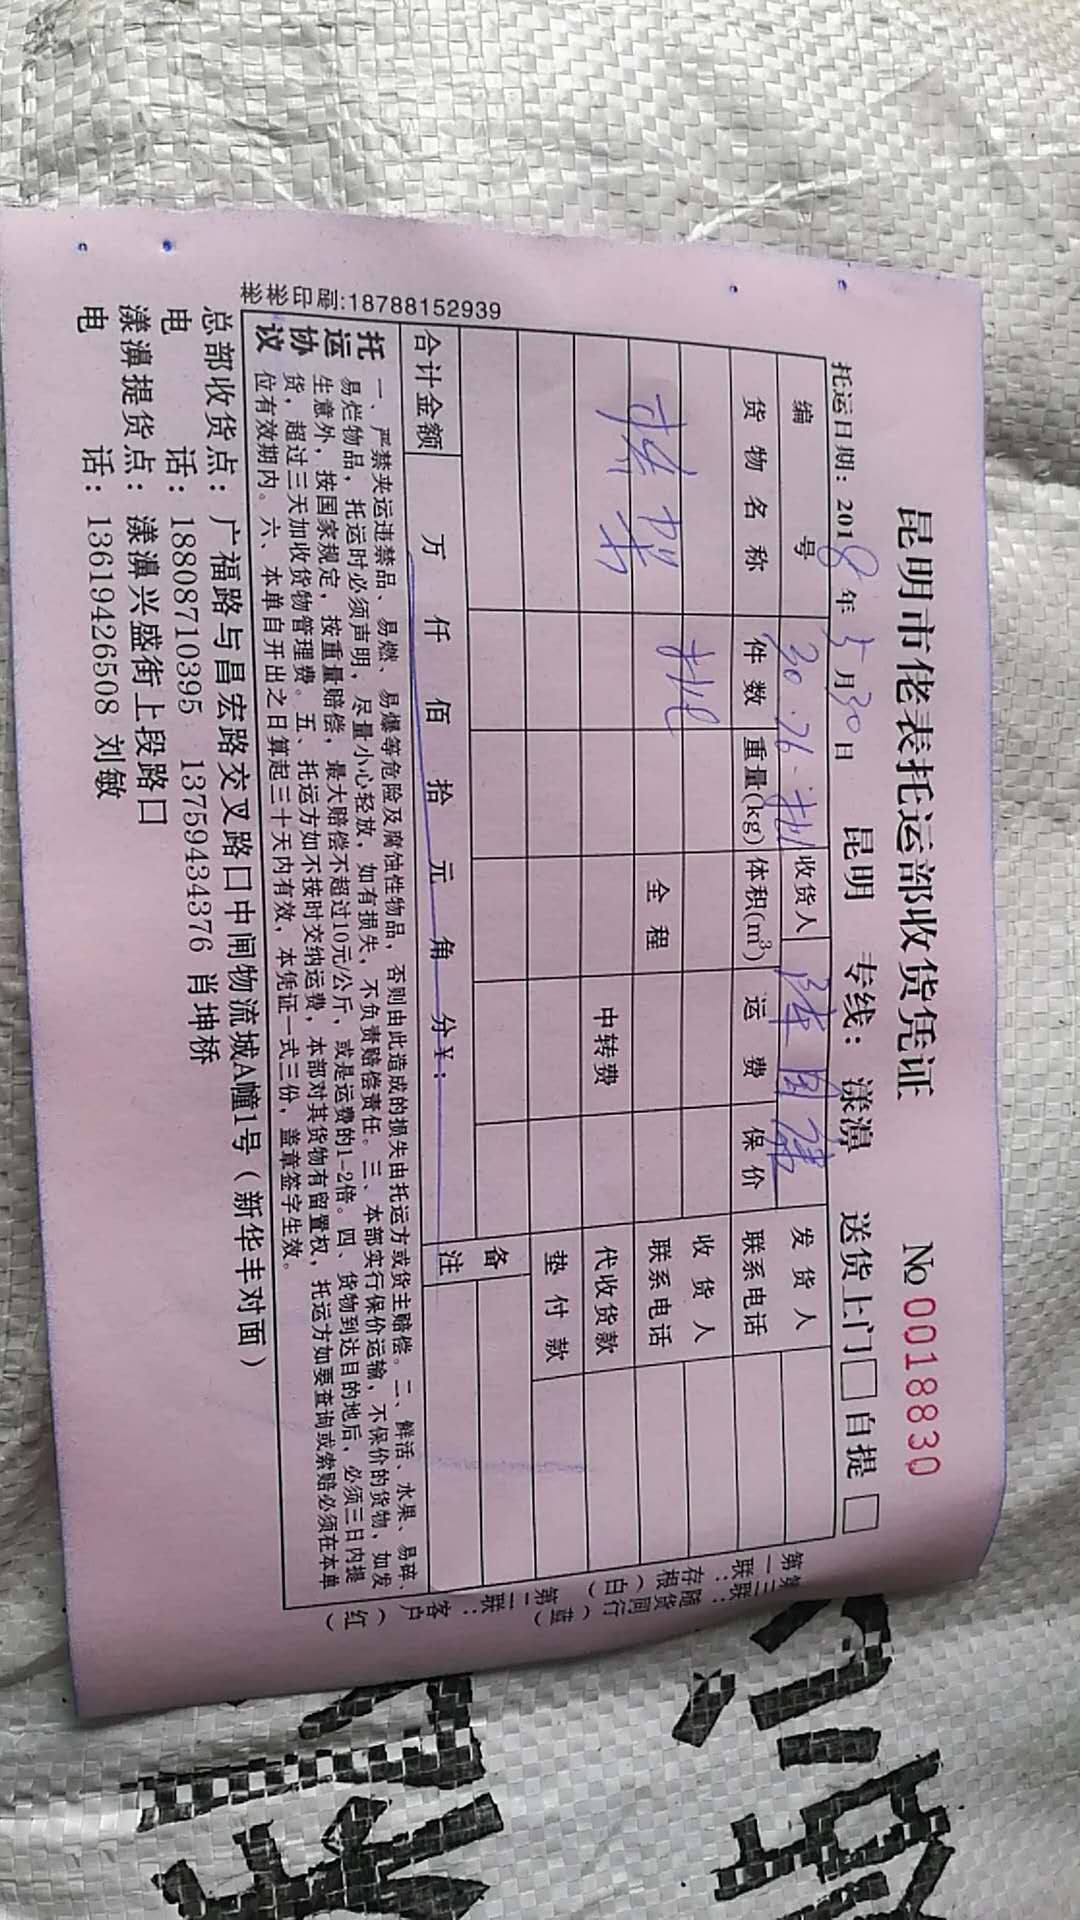 昆明市佬表托运部收货凭证 No 0018830
托运日期：2018年5月30日 昆明 专线：漾濞 送货上门□ 自提□
编号 30·26·批 收货人 陈国 发货人
货物名称 件数 重量(kg) 体积(m³) 运费 保价 联系电话
批 收货人
桥架 全程 联系电话
中转费 代收货款
垫付款
备注
合计金额 万 仟 佰 拾 元 角 分¥：
托运协议
一、严禁夹运违禁品、易燃、易爆等危险及腐蚀性物品，否则由此造成的损失由托运方或货主赔偿。二、鲜活、水果、易碎、
易烂物品，托运时必须声明，尽量小心轻放，如有损失，不负责赔偿责任。三、本部实行保价运输，不保价的货物，如发
生意外，按国家规定，按重量赔偿，最大赔偿不超过10元/公斤，或是运费的1-2倍。四、货物到达目的地后，必须三日内提
货，超过三天加收货物管理费。五、托运方如不按时交纳运费，本部对其货物有留置权，托运方如要查询或索赔必须在本单
位有效期内。六、本单自开出之日算起三十天内有效，本凭证一式三份，盖章签字生效。
总部收货点：广福路与昌宏路交叉路口中闸物流城A幢1号（新华丰对面）
电话：18808710395 13759434376 肖坤桥
漾濞提货点：漾濞兴盛街上段路口
电话：13619426508 刘敏
彬彬印刷:18788152939
第一联：存根（白） 第二联：客户（红）
第三联：随货同行（蓝）